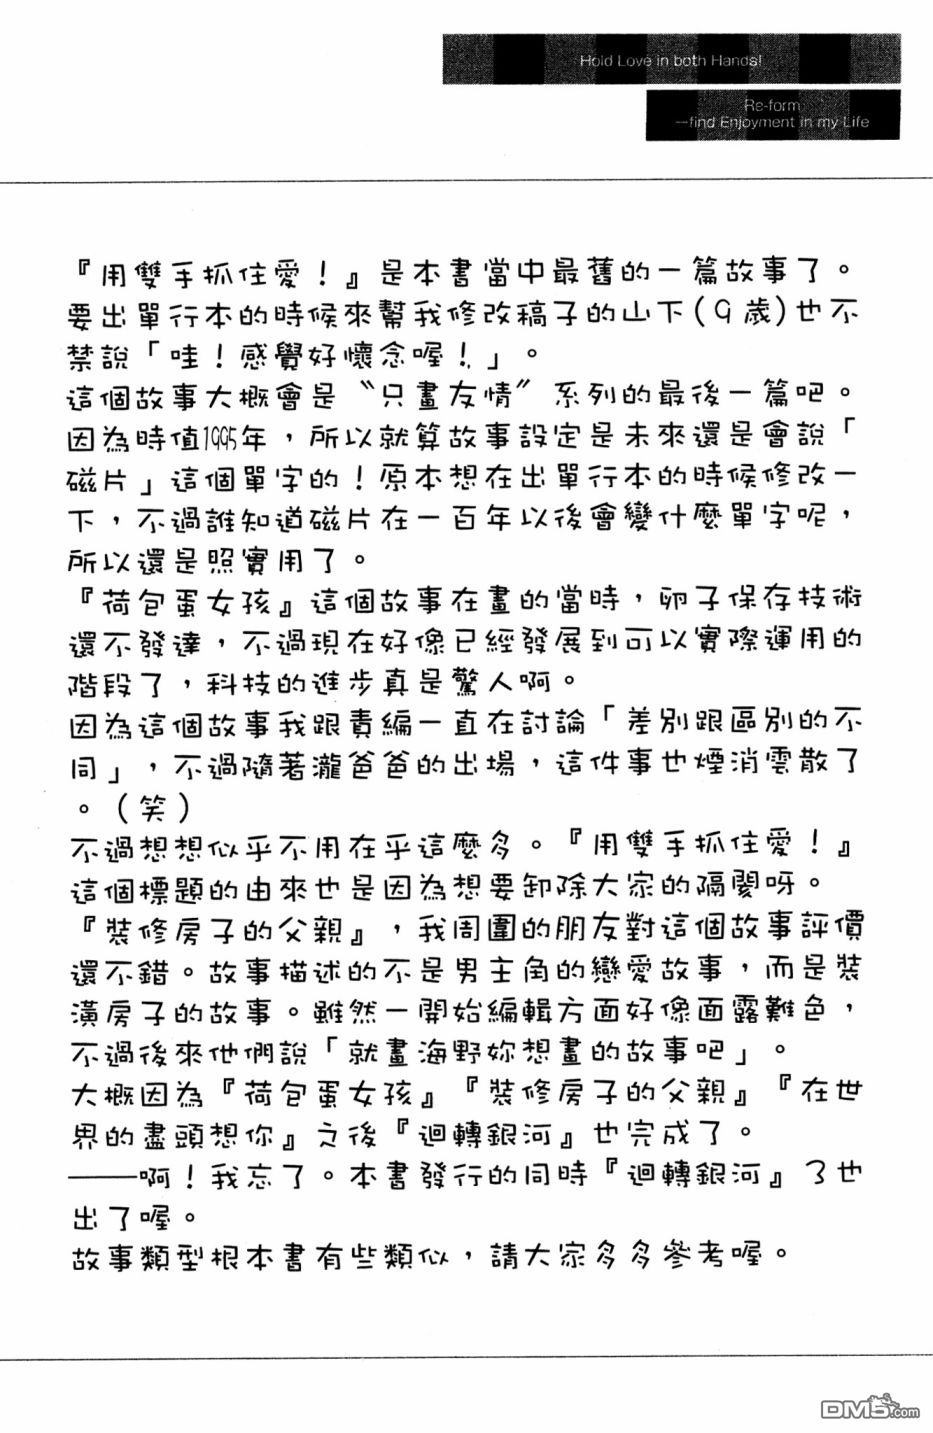 Hold Love in both Hands!
Re-form
—find Enjoyment in my Life
『用雙手抓住愛！』是本書當中最舊的一篇故事了。
要出單行本的時候來幫我修改稿子的山下(9歲)也不
禁說「哇！感覺好懷念喔！」。
這個故事大概會是〝只畫友情〞系列的最後一篇吧。
因為時值1995年，所以就算故事設定是未來還是會說「
磁片」這個單字的！原本想在出單行本的時候修改一
下，不過誰知道磁片在一百年以後會變什麼單字呢，
所以還是照實用了。
『荷包蛋女孩』這個故事在畫的當時，卵子保存技術
還不發達，不過現在好像已經發展到可以實際運用的
階段了，科技的進步真是驚人啊。
因為這個故事我跟責編一直在討論「差別跟區別的不
同」，不過隨著瀧爸爸的出場，這件事也煙消雲散了
。(笑)
不過想想似乎不用在乎這麼多。『用雙手抓住愛！』
這個標題的由來也是因為想要卸除大家的隔閡呀。
『裝修房子的父親』，我周圍的朋友對這個故事評價
還不錯。故事描述的不是男主角的戀愛故事，而是裝
潢房子的故事。雖然一開始編輯方面好像面露難色，
不過後來他們說「就畫海野妳想畫的故事吧」。
大概因為『荷包蛋女孩』『裝修房子的父親』『在世
界的盡頭想你』之後『迴轉銀河』也完成了。
——啊！我忘了。本書發行的同時『迴轉銀河』3也
出了喔。
故事類型根本書有些類似，請大家多多參考喔。
DM5.com